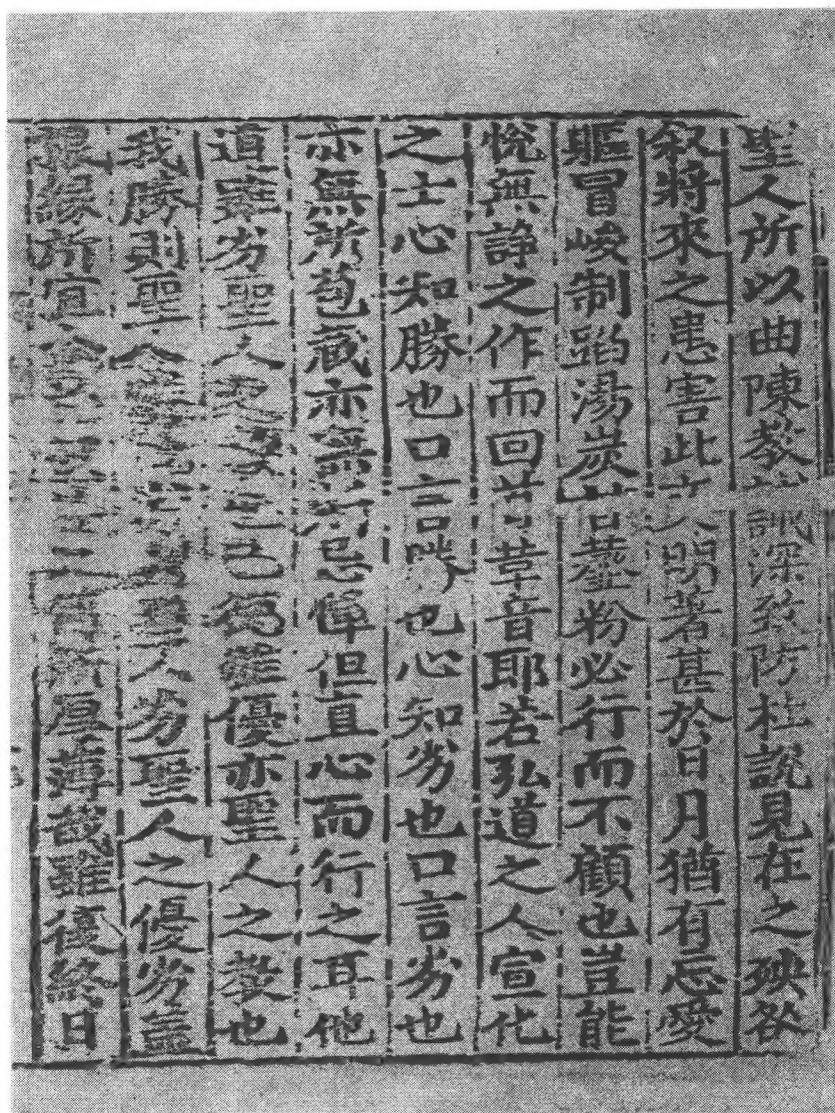 聖人所以曲陳教誡深致防杜說見在之殃咎
叙將來之患害此文明著甚於日月猶有忘愛
軀冒峻制蹈湯炭甘虀粉必行而不顧也豈能
悅無諍之作而回首革音耶若弘道之人宣化
之士心知勝也口言勝也心知劣也口言劣也
亦無所苞藏亦無所忌憚但直心而行之耳他
道雖劣聖人之教也己德雖優亦聖人之教也
我勝則聖人聖人劣聖人之優劣蓋
根緣所宜厚薄哉雖復終日